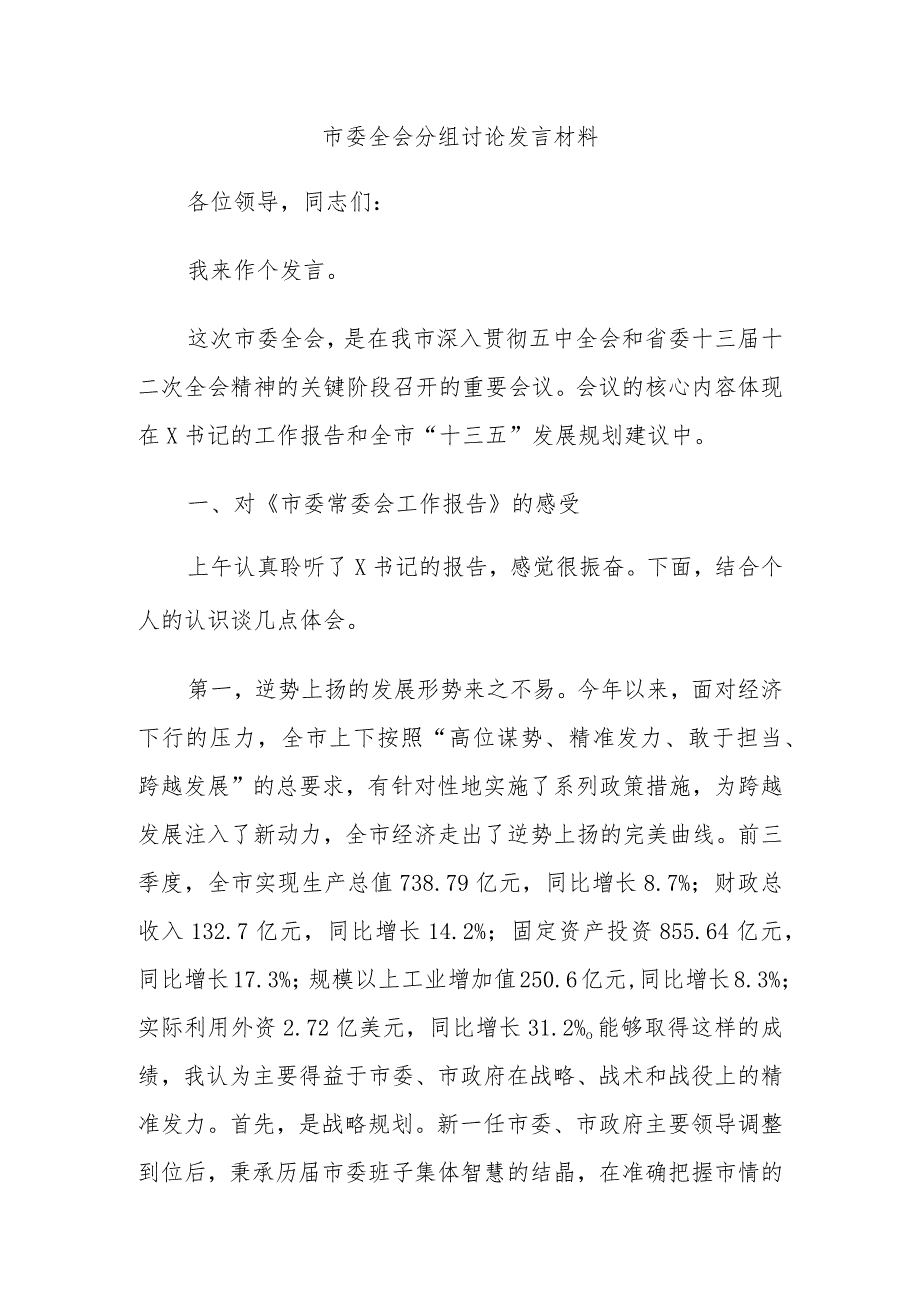 市委全会分组讨论发言材料
各位领导，同志们：
我来作个发言。
这次市委全会，是在我市深入贯彻五中全会和省委十三届十
二次全会精神的关键阶段召开的重要会议。会议的核心内容体现
在 X 书记的工作报告和全市“十三五”发展规划建议中。
一、对《市委常委会工作报告》的感受
上午认真聆听了 X 书记的报告，感觉很振奋。下面，结合个
人的认识谈几点体会。
第一，逆势上扬的发展形势来之不易。今年以来，面对经济
下行的压力，全市上下按照“高位谋势、精准发力、敢于担当、
跨越发展”的总要求，有针对性地实施了系列政策措施，为跨越
发展注入了新动力，全市经济走出了逆势上扬的完美曲线。前三
季度，全市实现生产总值 738.79 亿元，同比增长 8.7%；财政总
收入 132.7 亿元，同比增长 14.2%；固定资产投资 855.64 亿元，
同比增长 17.3%；规模以上工业增加值 250.6 亿元,同比增长 8.3%；
实际利用外资 2.72 亿美元，同比增长 31.2%。能够取得这样的成
绩，我认为主要得益于市委、市政府在战略、战术和战役上的精
准发力。首先，是战略规划。新一任市委、市政府主要领导调整
到位后，秉承历届市委班子集体智慧的结晶，在准确把握市情的